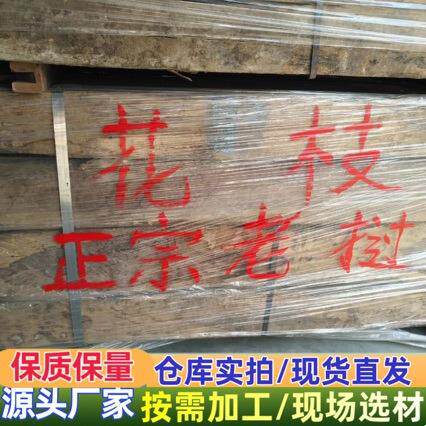 花枝
正宗老树
保质保量 仓库实拍/现货直发
源头厂家 按需加工/现场选材